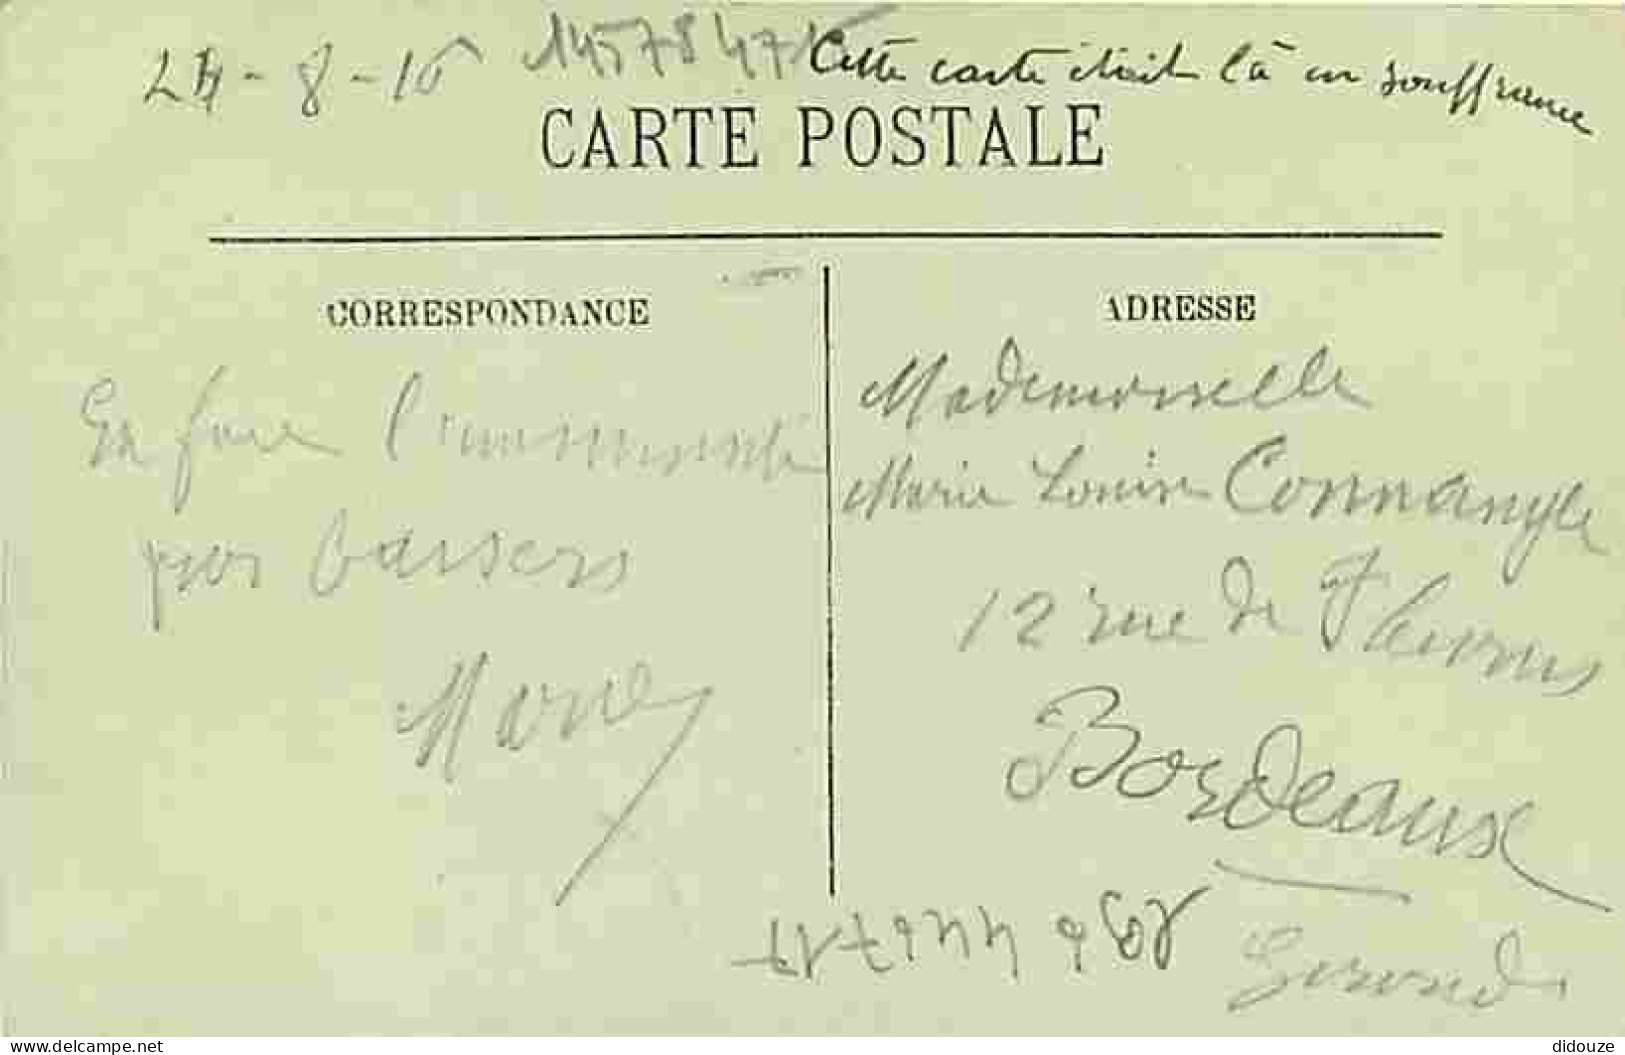 24-8-16 145784715 Cette carte était là en souffrance
CARTE POSTALE
CORRESPONDANCE
ADRESSE
En face l'immensité
gros baisers
Marie
Mademoiselle
Marie Louise Connangle
12 rue de Fleurus
Bordeaux
Gironde
delcampe.net
didouze